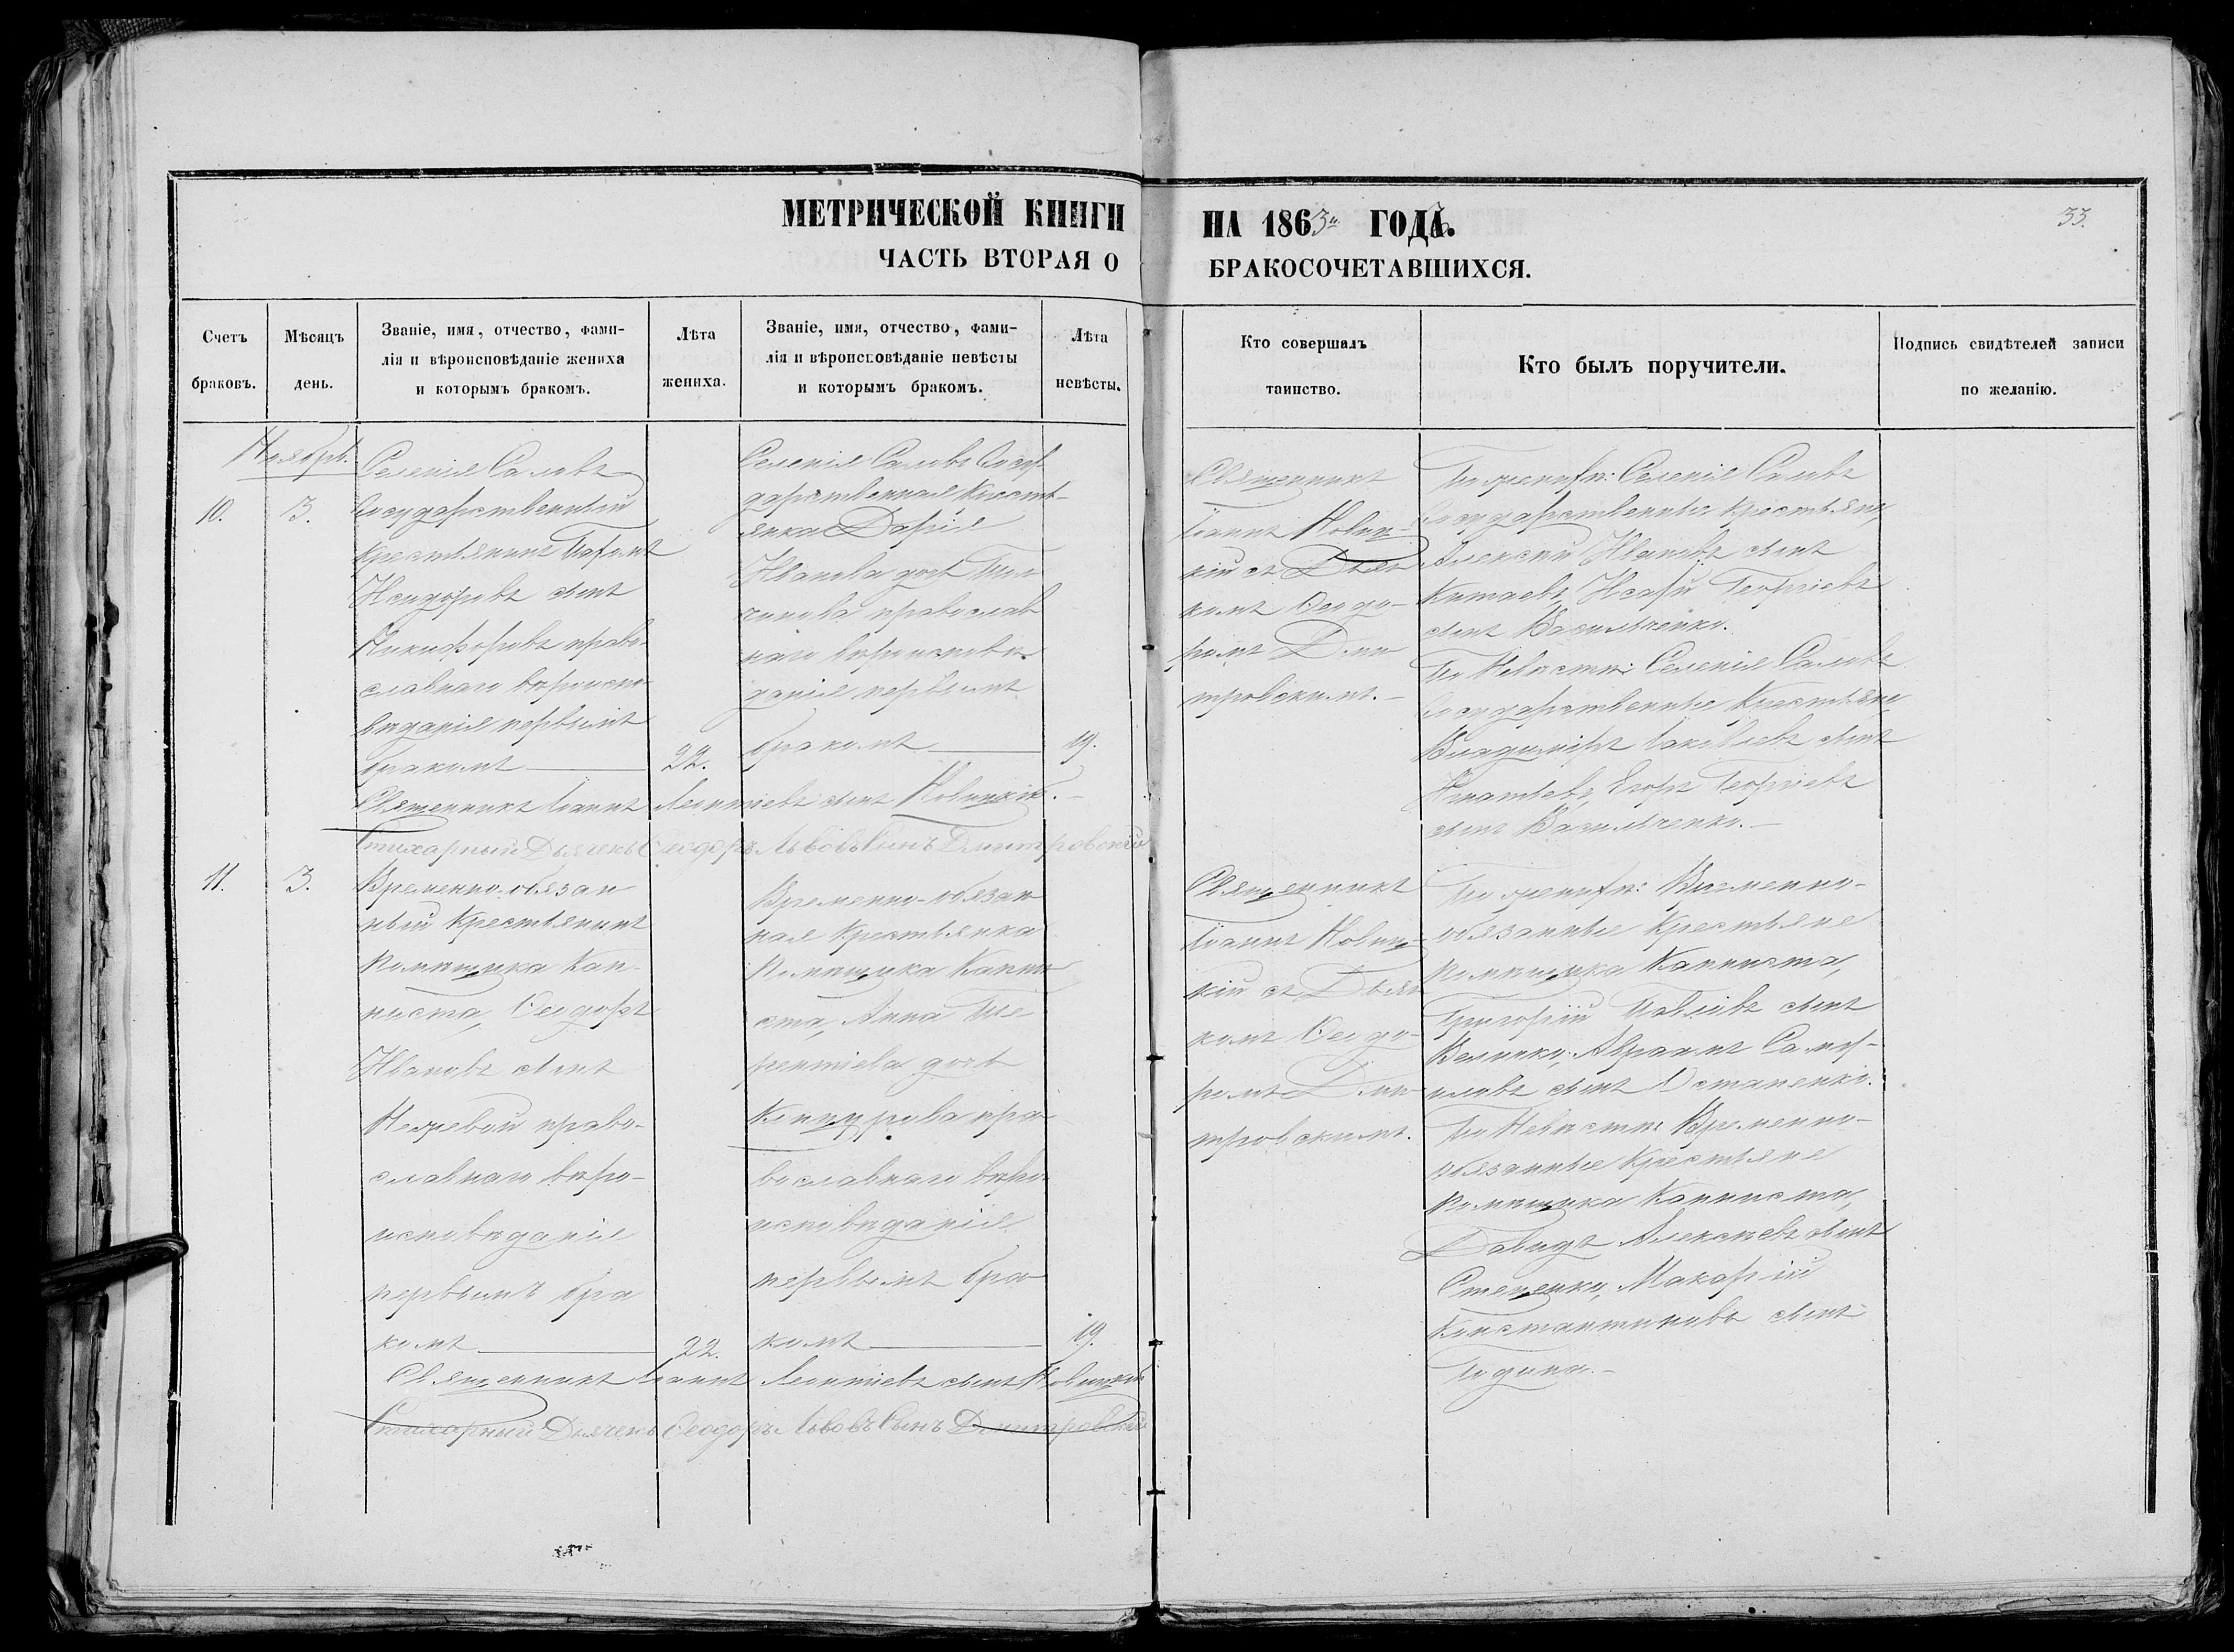 МЕТРИЧЕСКОЙ КНИГИ НА 1863й ГОДЪ.
33.
ЧАСТЬ ВТОРАЯ О БРАКОСОЧЕТАВШИХСЯ.
Счетъ
браковъ.
Мѣсяцъ
день.
Званіе, имя, отчество, фами-
лія и вѣроисповѣданіе жениха
и которымъ бракомъ.
Лѣта
жениха.
Званіе, имя, отчество, фами-
лія и вѣроисповѣданіе невѣсты
и которымъ бракомъ.
Лѣта
невѣсты.
Кто совершалъ
таинство.
Кто былъ поручители.
Подпись свидѣтелей записи
по желанію.
Ноябрь.
10.
3.
Селенія Саловъ
Государственный
крестьянинъ
Исидоровъ сынъ
Никифоровъ право-
славнаго вѣроиспо-
вѣданія первымъ
бракомъ
22.
Селенія Саловъ Госу-
дарственная Кресть-
янка Дарія
Иванова доч
православ
наго вѣроисповѣ-
данія первымъ
бракомъ
19.
Священникъ
Іоаннъ Новиц-
кій съ Дьяч
комъ Ѳеодо-
ромъ Дми
тровскимъ.
По женихѣ: Селенія Саловъ
Государственные крестьяне,
Алексѣй Ивановъ сынъ
Китаевъ, Георгіевъ
сынъ Василченко.
По Невѣстѣ: Селенія Саловъ
Государственные Крестьяне,
Владиміръ Іаковлевъ сынъ
Игнатьевъ, Егоръ Георгіевъ
сынъ Василченко.
Священникъ Іоаннъ Леонтіевъ сынъ Новицкій.
Стихарный Дьячекъ Ѳеодоръ Львовъ Сынъ Дмитровскій
11.
3.
Временно-обязан
ный Крестьянинъ
помѣщика Кап-
ниста, Ѳеодоръ
Ивановъ сынъ
право-
славнаго вѣро-
исповѣданія
первымъ бра
комъ
22.
Временно-обязан
ная Крестьянка
помѣщика Капни
ста, Анна Те
рентіева дочь
пра
вославнаго вѣро
исповѣданія
первымъ бра
комъ
19.
Священникъ
Іоаннъ Новиц-
кій съ Дьяч
комъ Ѳеодо-
ромъ Дми-
тровскимъ.
По женихѣ: Временно-
обязанные Крестьяне
помѣщика Капниста,
Григорій Павловъ сынъ
Величко, Авраамъ Самой-
ловъ сынъ Остапенко.
По Невѣстѣ: Временно-
обязанные Крестьяне
помѣщика Капниста,
Давидъ Алексѣевъ сынъ
Макарій
Константиновъ сынъ
Священникъ Іоаннъ Леонтіевъ сынъ Новицкій
Стихарный Дьячекъ Ѳеодоръ Львовъ Сынъ Дмитровскій